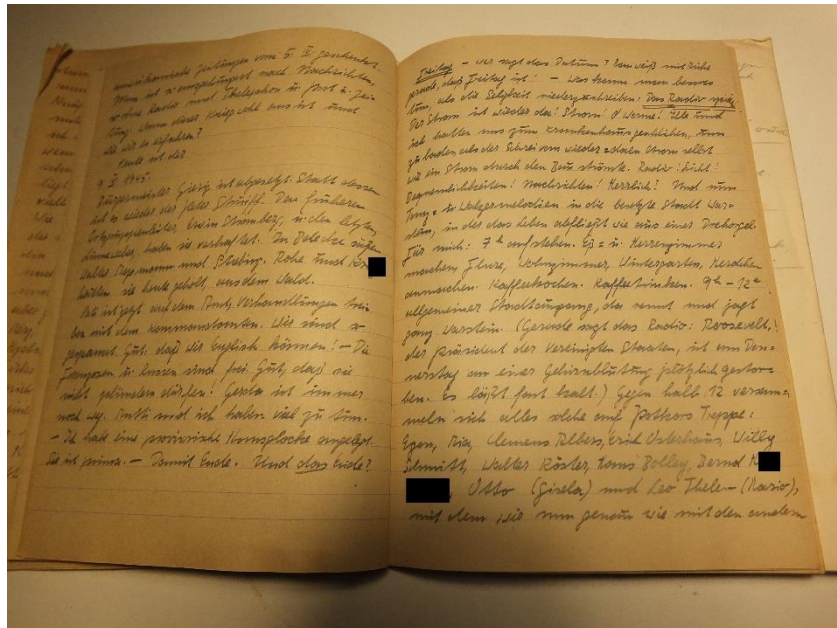 amerikanische Zeitungen vom 5. IV geschenkt.
Man ist so ausgehungert nach Nachrichten,
so ohne Radio und Telephon u. Post u. Zei-
tung. Wenn dieser Krieg wohl aus ist und
wie wir es erfahren?
Heute ist der
9. IV 1945.
Bürgermeister ist abgesetzt. Statt dessen
ist es wieder der selbe Den früheren
Ortsgruppenleiter, Erwin Stromberg, u. den letzten,
haben sie verhaftet. In Belecke
Walter Siepmann und Röhe und
hätten sie heute geholt, aus dem Wald.
Pati ist jetzt auf dem Amt, Verhandlungen trei-
ben mit dem Kommandanten. Wir sind so
gespannt. Gut, daß wir Englisch können! – Die
Franzosen u. Russen sind frei. Gut, daß sie
nicht plündern dürfen! Gerda ist immer
noch weg. Mutti und ich haben viel zu tun.
– Ich habe eine provisorische Hausglocke angelegt.
Sie ist prima. – Damit Ende. Und das Ende?
Freitag – wer sagt das Datum? Man weiß mit Mühe
gerade, daß Freitag ist! – Was kann man besser
tun, als die Seligkeit niederzuschreiben: Das Radio spielt.
Der Strom ist wieder da! Strom! O Wonne! Ulle und
ich hatten uns zum Krankenhaus geschlichen, um
zu baden, als der Schrei vom wieder Strom selbst
wie ein Strom durch den Bau strömte. Radio! Licht!
Bequemlichkeiten! Nachrichten! Herrlich! Und nun
Tanz- u. Walzermelodien in die besetzte Stadt War-
stein, in der das Leben abfließt wie aus einer Drehorgel.
Für mich: 7 h aufstehen. Eß- u. Herrenzimmer
machen, Flure, Wohnzimmer, Wintergarten, Herdchen
anmachen. Kaffeekochen. Kaffeetrinken. 9 h – 12 h
allgemeiner Stadtausgang, da rennt und jagt
ganz Warstein. (Gerade sagt das Radio: Roosevelt,
der Präsident der Vereinigten Staaten, ist am Don-
nerstag an einer Gehirnblutung plötzlich gestor-
ben. Es läßt fast kalt.) Gegen halb 12 versam-
meln sich alles solche auf Treppe:
Egon, Ria, Clemens Albers, Erich Osterhaus, Willy
Schmitt, Walter Köster, Hans Bolley, Bernd
Otto (Gisela) und Leo Thele– (Mario),
mit dem wir nun genau wie mit den andern